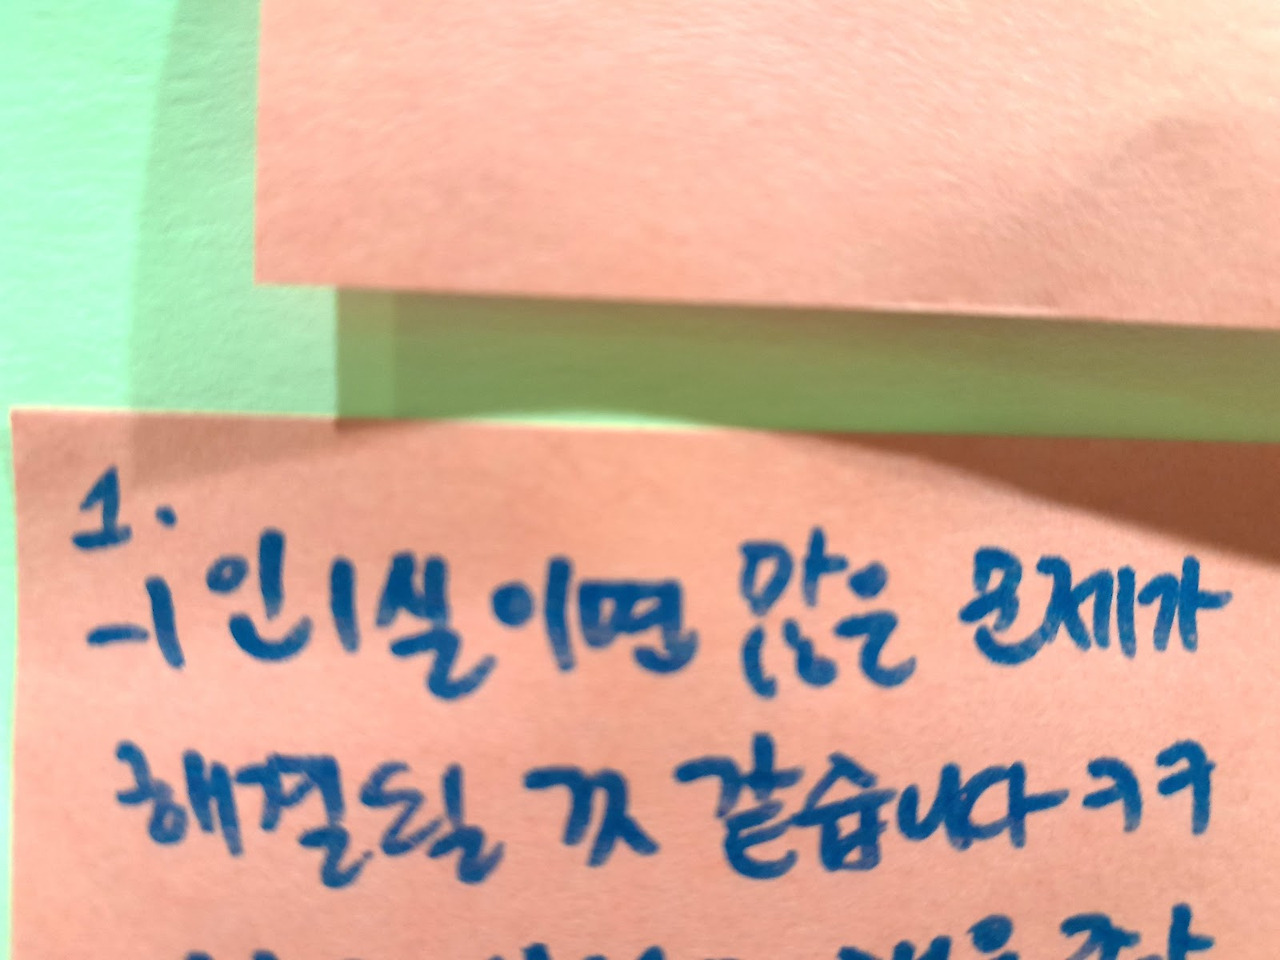 1.
-1인1실이면 많은 문제가
해결될 것 같습니다ㅋㅋ